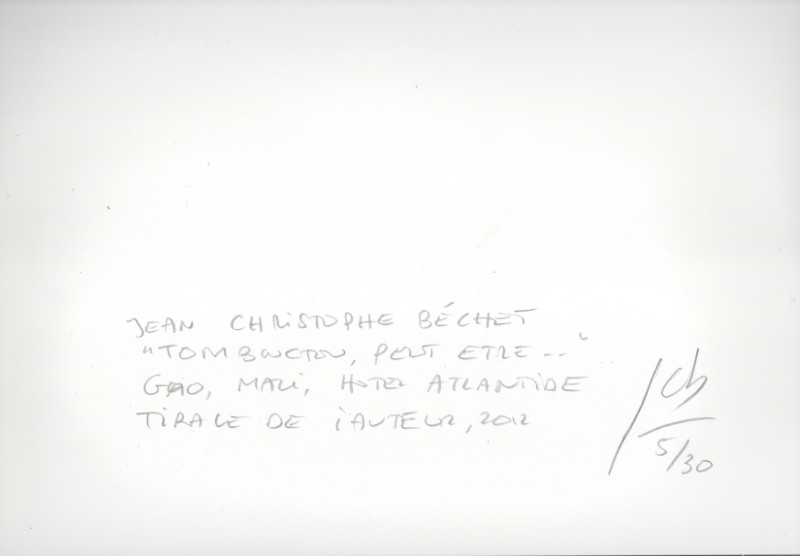 JEAN CHRISTOPHE BÉCHET
"TOMBOUCTOU, PEUT ETRE..."
GAO, MALI, HOTEL ATLANTIDE
TIRAGE DE L'AUTEUR, 2012
JCB
5/30